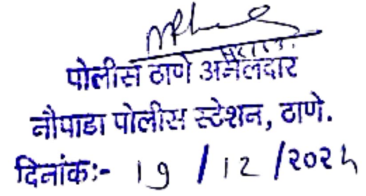 पोलीस ठाणे अंमलदार
नौपाडा पोलीस स्टेशन, ठाणे.
दिनांक:- 19 / 12 / २०२५